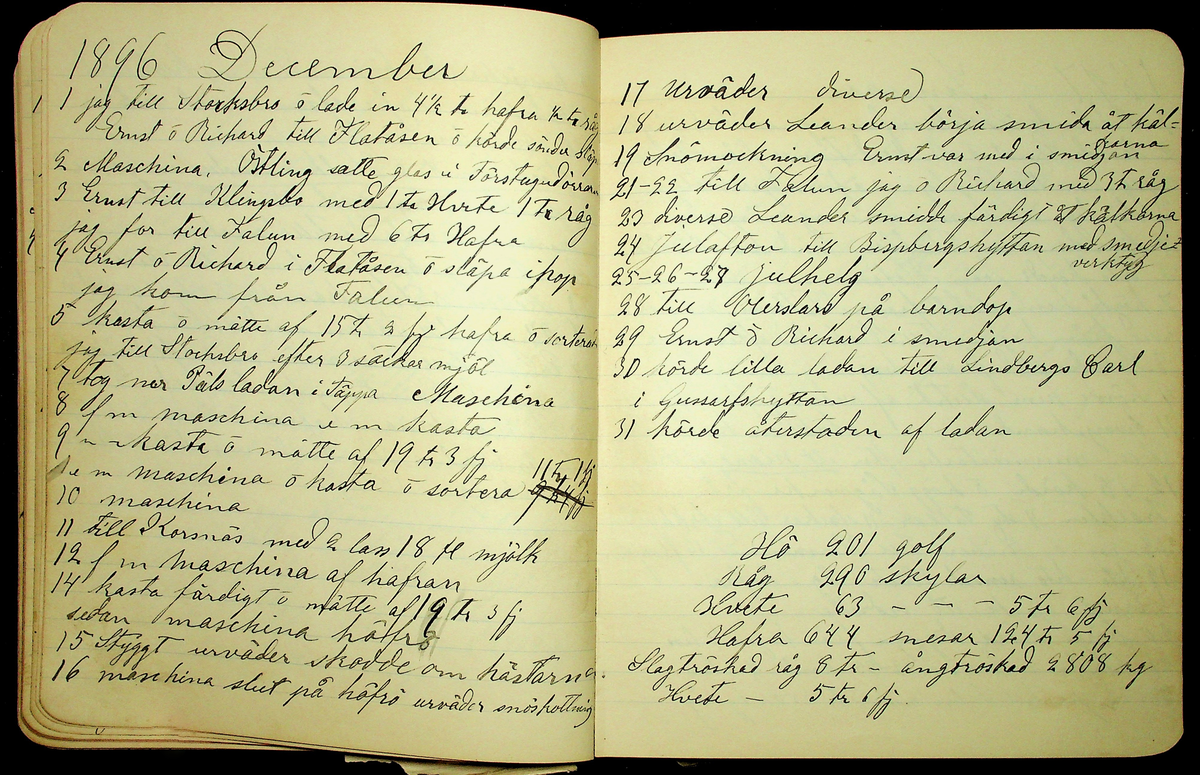 1896 December
1 jag till Storksbro o lade in 4½ tr hafra ½ tr råg
Ernst o Richard till Flatåsen o körde sönder
2 Maschina. Östling satte glas i Förstugudörrarna
3 Ernst till Klingsbo med 1 tr Hvete 1 tr råg
jag for till Falun med 6 tr Hafra
4 Ernst o Richard i Flatåsen o släpa ihop
jag kom från Falun
5 kasta o mätte af 15 t 2 fj hafra o sortera
jag till Stocksbro efter 3 säckar mjöl
7 tog ner Päls ladan i Täppa Maschina
8 f m maschina e m kasta
9 " - kasta o mätte af 19 tr 3 fj
e m maschina o kasta o sortera 11 tr 1 fj
10 maschina
11 till Korsnäs med 2 lass 18 mjölk
12 f m maschina af hafran
14 kasta färdigt o mätte af 19 tr 3 fj
sedan maschina höfrö
15 Styggt urväder skodde om hästarna
16 maschina slut på höfrö urväder snöskottning
17 urväder diverse
18 urväder Leander börja smida åt käl-
karna
19 Snömockning Ernst var med i smidjan
21-22 till Falun jag o Richard med 3 t råg
23 diverse Leander smidde färdigt åt kälkarna
24 julafton till Bispbergshyttan med smedje-
verktyg
25-26-27 julhelg
28 till Olerslars på barndop
29 Ernst o Richard i smedjan
30 körde lilla ladan till Lindbergs Carl
i Gussarfshyttan
31 körde återstoden af ladan
Hö 201 golf
Råg 290 skylar
Hvete 63 - - - 5 tr 6 fj
Hafra 644 snesar 124 tr 5 fj
Slagtröskad råg 8 tr - ångtröskad 2808 kg
Hvete - 5 tr 6 fj.